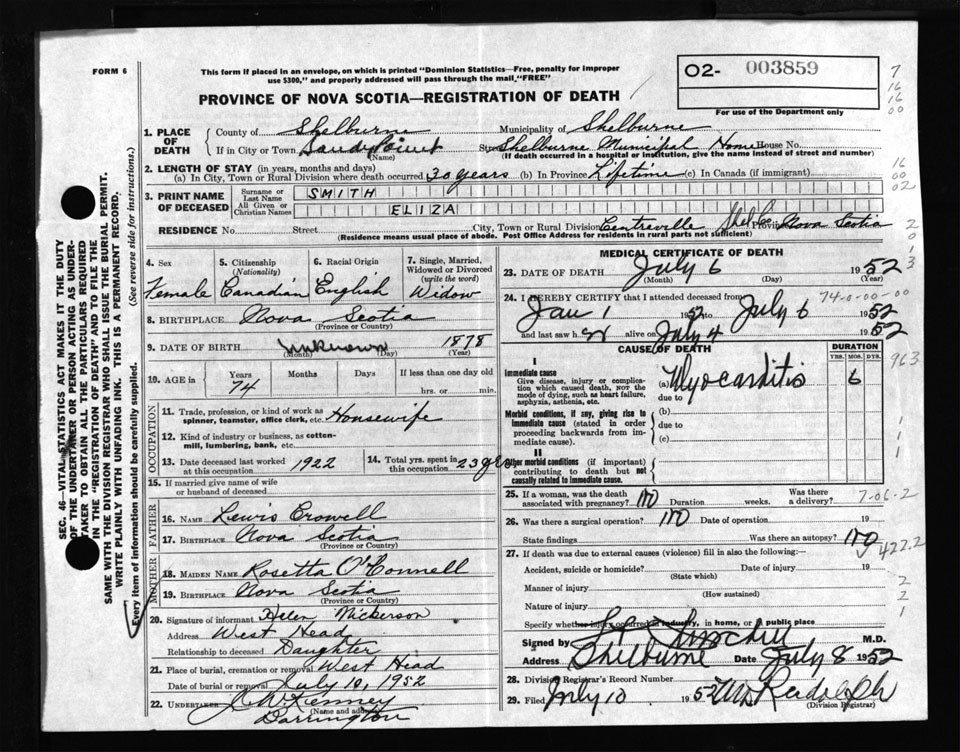 FORM 6
This form if placed in an envelope, on which is printed "Dominion Statistics—Free, penalty for improper
use $300," and properly addressed will pass through the mail, "FREE"
PROVINCE OF NOVA SCOTIA—REGISTRATION OF DEATH
O2- 003859
For use of the Department only
7
16
16
00
1. PLACE OF DEATH
County of Shelburne Municipality of Shelburne
If in City or Town Sandy Point Street Shelburne Municipal Home House No.
(Name) (If death occurred in a hospital or institution, give the name instead of street and number)
2. LENGTH OF STAY (in years, months and days)
(a) In City, Town or Rural Division where death occurred 30 years (b) In Province Lifetime (c) In Canada (if immigrant)
16
00
02
3. PRINT NAME OF DECEASED
Surname or Last Name SMITH
All Given or Christian Names ELIZA
RESIDENCE No. Street City, Town or Rural Division Centreville Shel Co Province Nova Scotia
(Residence means usual place of abode. Post Office Address for residents in rural parts not sufficient)
2
0
1
3
4. Sex 5. Citizenship (Nationality) 6. Racial Origin 7. Single, Married, Widowed or Divorced (write the word)
Female Canadian English Widow
8. BIRTHPLACE Nova Scotia
(Province or Country)
9. DATE OF BIRTH unknown 1878
(Month) (Day) (Year)
10. AGE in Years Months Days If less than one day old
74 hrs. or min.
OCCUPATION
11. Trade, profession, or kind of work as
spinner, teamster, office clerk, etc. Housewife
12. Kind of industry or business, as cotton-
mill, lumbering, bank, etc.
13. Date deceased last worked
at this occupation 1922
14. Total yrs. spent in
this occupation 23 yrs
15. If married give name of wife
or husband of deceased
FATHER
16. NAME Lewis Crowell
17. BIRTHPLACE Nova Scotia
(Province or Country)
MOTHER
18. MAIDEN NAME Rosetta O'Connell
19. BIRTHPLACE Nova Scotia
(Province or Country)
20. Signature of informant Helen Nickerson
Address West Head
Relationship to deceased Daughter
21. Place of burial, cremation or removal West Head
Date of burial or removal July 10, 1952
22. UNDERTAKER
(Name and address)
Barrington
MEDICAL CERTIFICATE OF DEATH
23. DATE OF DEATH July 6 1952
(Month) (Day) (Year)
24. I HEREBY CERTIFY that I attended deceased from 74-0-00-00
Jan 1 1952 to July 6 1952
and last saw h er alive on July 4 1952
CAUSE OF DEATH DURATION
YRS. MOS. DYS.
963
I
Immediate cause
Give disease, injury or complica-
tion which caused death, NOT the
mode of dying, such as heart failure,
asphyxia, asthenia, etc.
(a) Myocarditis 6
due to
Morbid conditions, if any, giving rise to
immediate cause (stated in order
proceeding backwards from im-
mediate cause).
(b)
due to
(c)
1
1
1
II
Other morbid conditions (if important)
contributing to death but not
causally related to immediate cause.
25. If a woman, was the death
associated with pregnancy? no Duration weeks. Was there a delivery?
7-06-2
26. Was there a surgical operation? no Date of operation 19
State findings Was there an autopsy? no
422.2
27. If death was due to external causes (violence) fill in also the following:—
Accident, suicide or homicide? Date of injury 19
(State which)
Manner of injury
(How sustained)
Nature of injury
2
2
1
Specify whether injury occurred in industry, in home, or in public place
Signed by M.D.
Address Shelburne Date July 8 1952
28. Division Registrar's Record Number
29. Filed July 10 1952
(Division Registrar)
SEC. 46—VITAL STATISTICS ACT MAKES IT THE DUTY
OF THE UNDERTAKER OR PERSON ACTING AS UNDER-
TAKER TO OBTAIN ALL THE PARTICULARS REQUIRED
IN THE "REGISTRATION OF DEATH" AND TO FILE THE
SAME WITH THE DIVISION REGISTRAR WHO SHALL ISSUE THE BURIAL PERMIT.
WRITE PLAINLY WITH UNFADING INK. THIS IS A PERMANENT RECORD.
Every item of information should be carefully supplied. (See reverse side for instructions.)